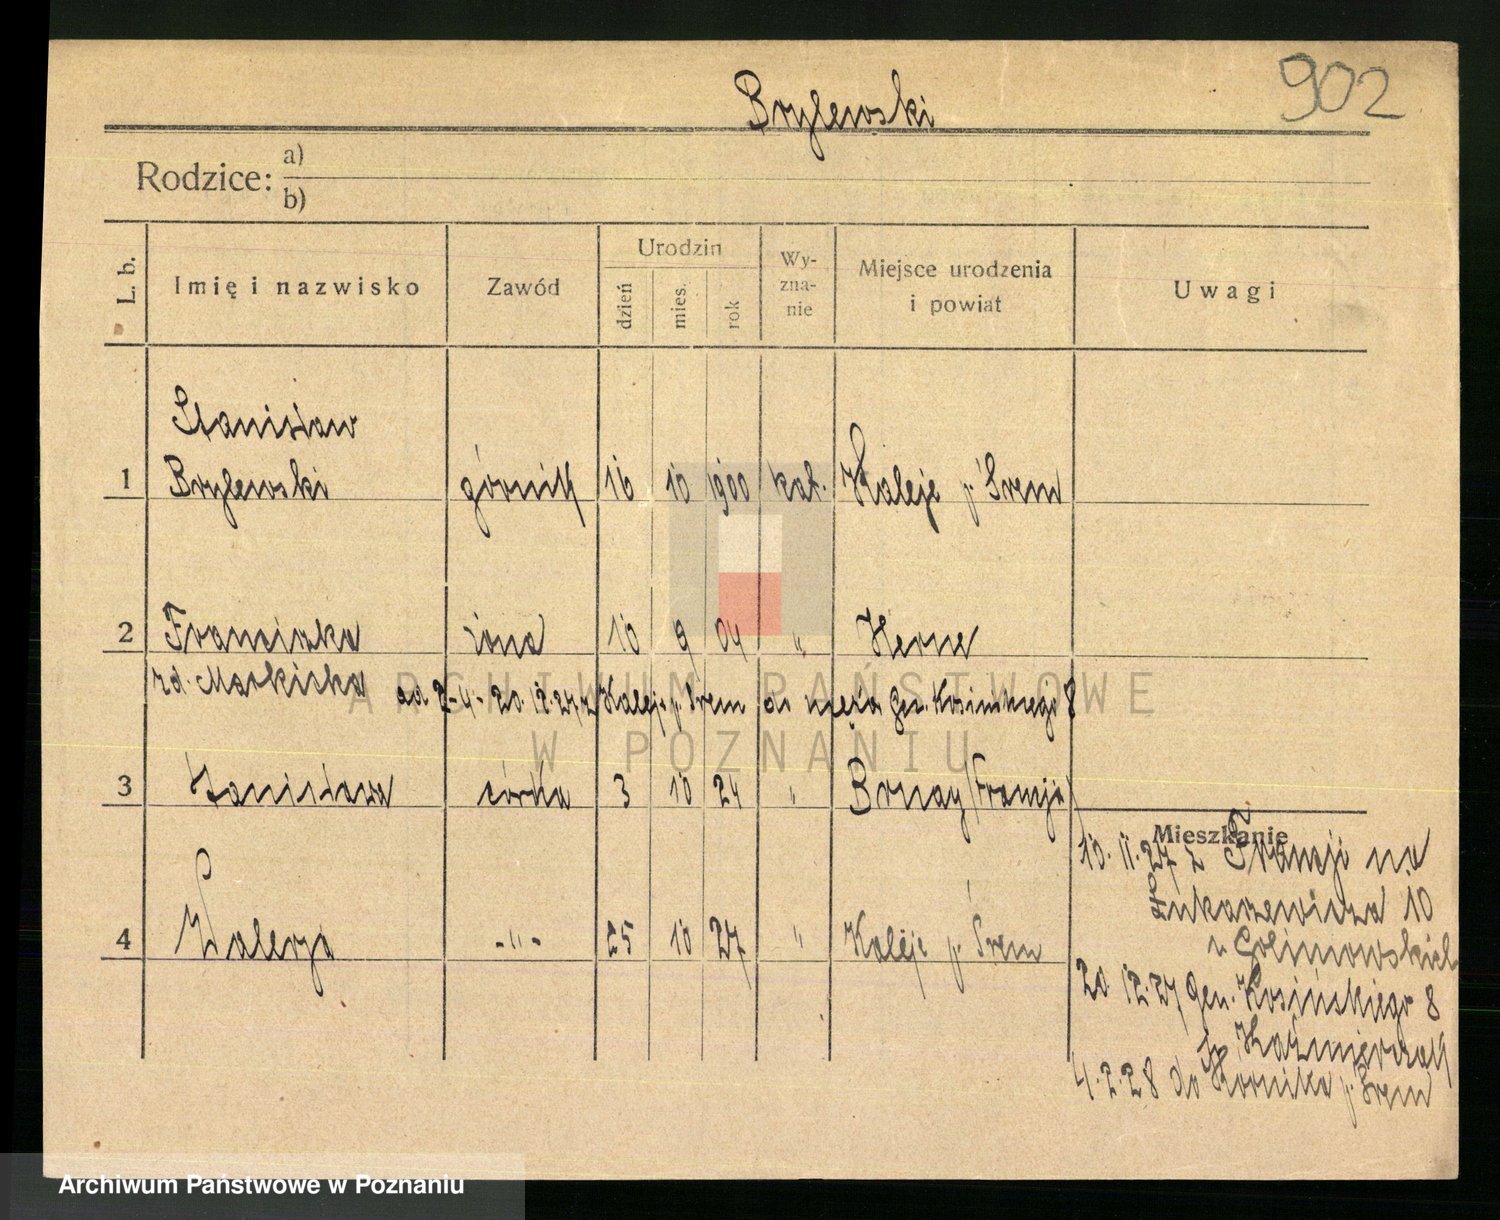 902
Brylewski
Rodzice: a)
b)
L. b. Imię i nazwisko Zawód Urodzin dzień mies. rok Wy-zna-nie Miejsce urodzenia i powiat Uwagi
Stanisław
1 Brylewski górnik 16 10 1900 kat. Kaleje p. Śrem
2 Franciszka żona 10 9 04 " Herne
rd. Markiska od 2-4 - 20.12.27 z Kaleje p. Śrem do męża Gen. Kosińskiego 8
3 Stanisława córka 3 10 24 " Bruay (Francja)
Mieszkanie
10.11.27 z Francji na
Łukaszewicza 10
u
4 Walerja -"- 25 10 27 " Kaleje p. Śrem
20 12.27 Gen. Kosińskiego 8
Kaźmierczak
4.2.28 do Kórnika p. Śrem
ARCHIWUM PAŃSTWOWE
W POZNANIU
Archiwum Państwowe w Poznaniu